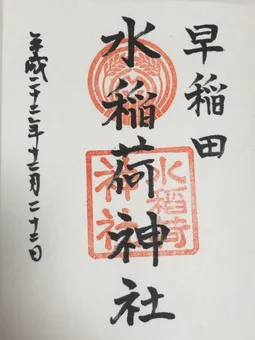 早稲田
水稲荷神社
平成二十二年十二月二十二日
水稲荷
神社